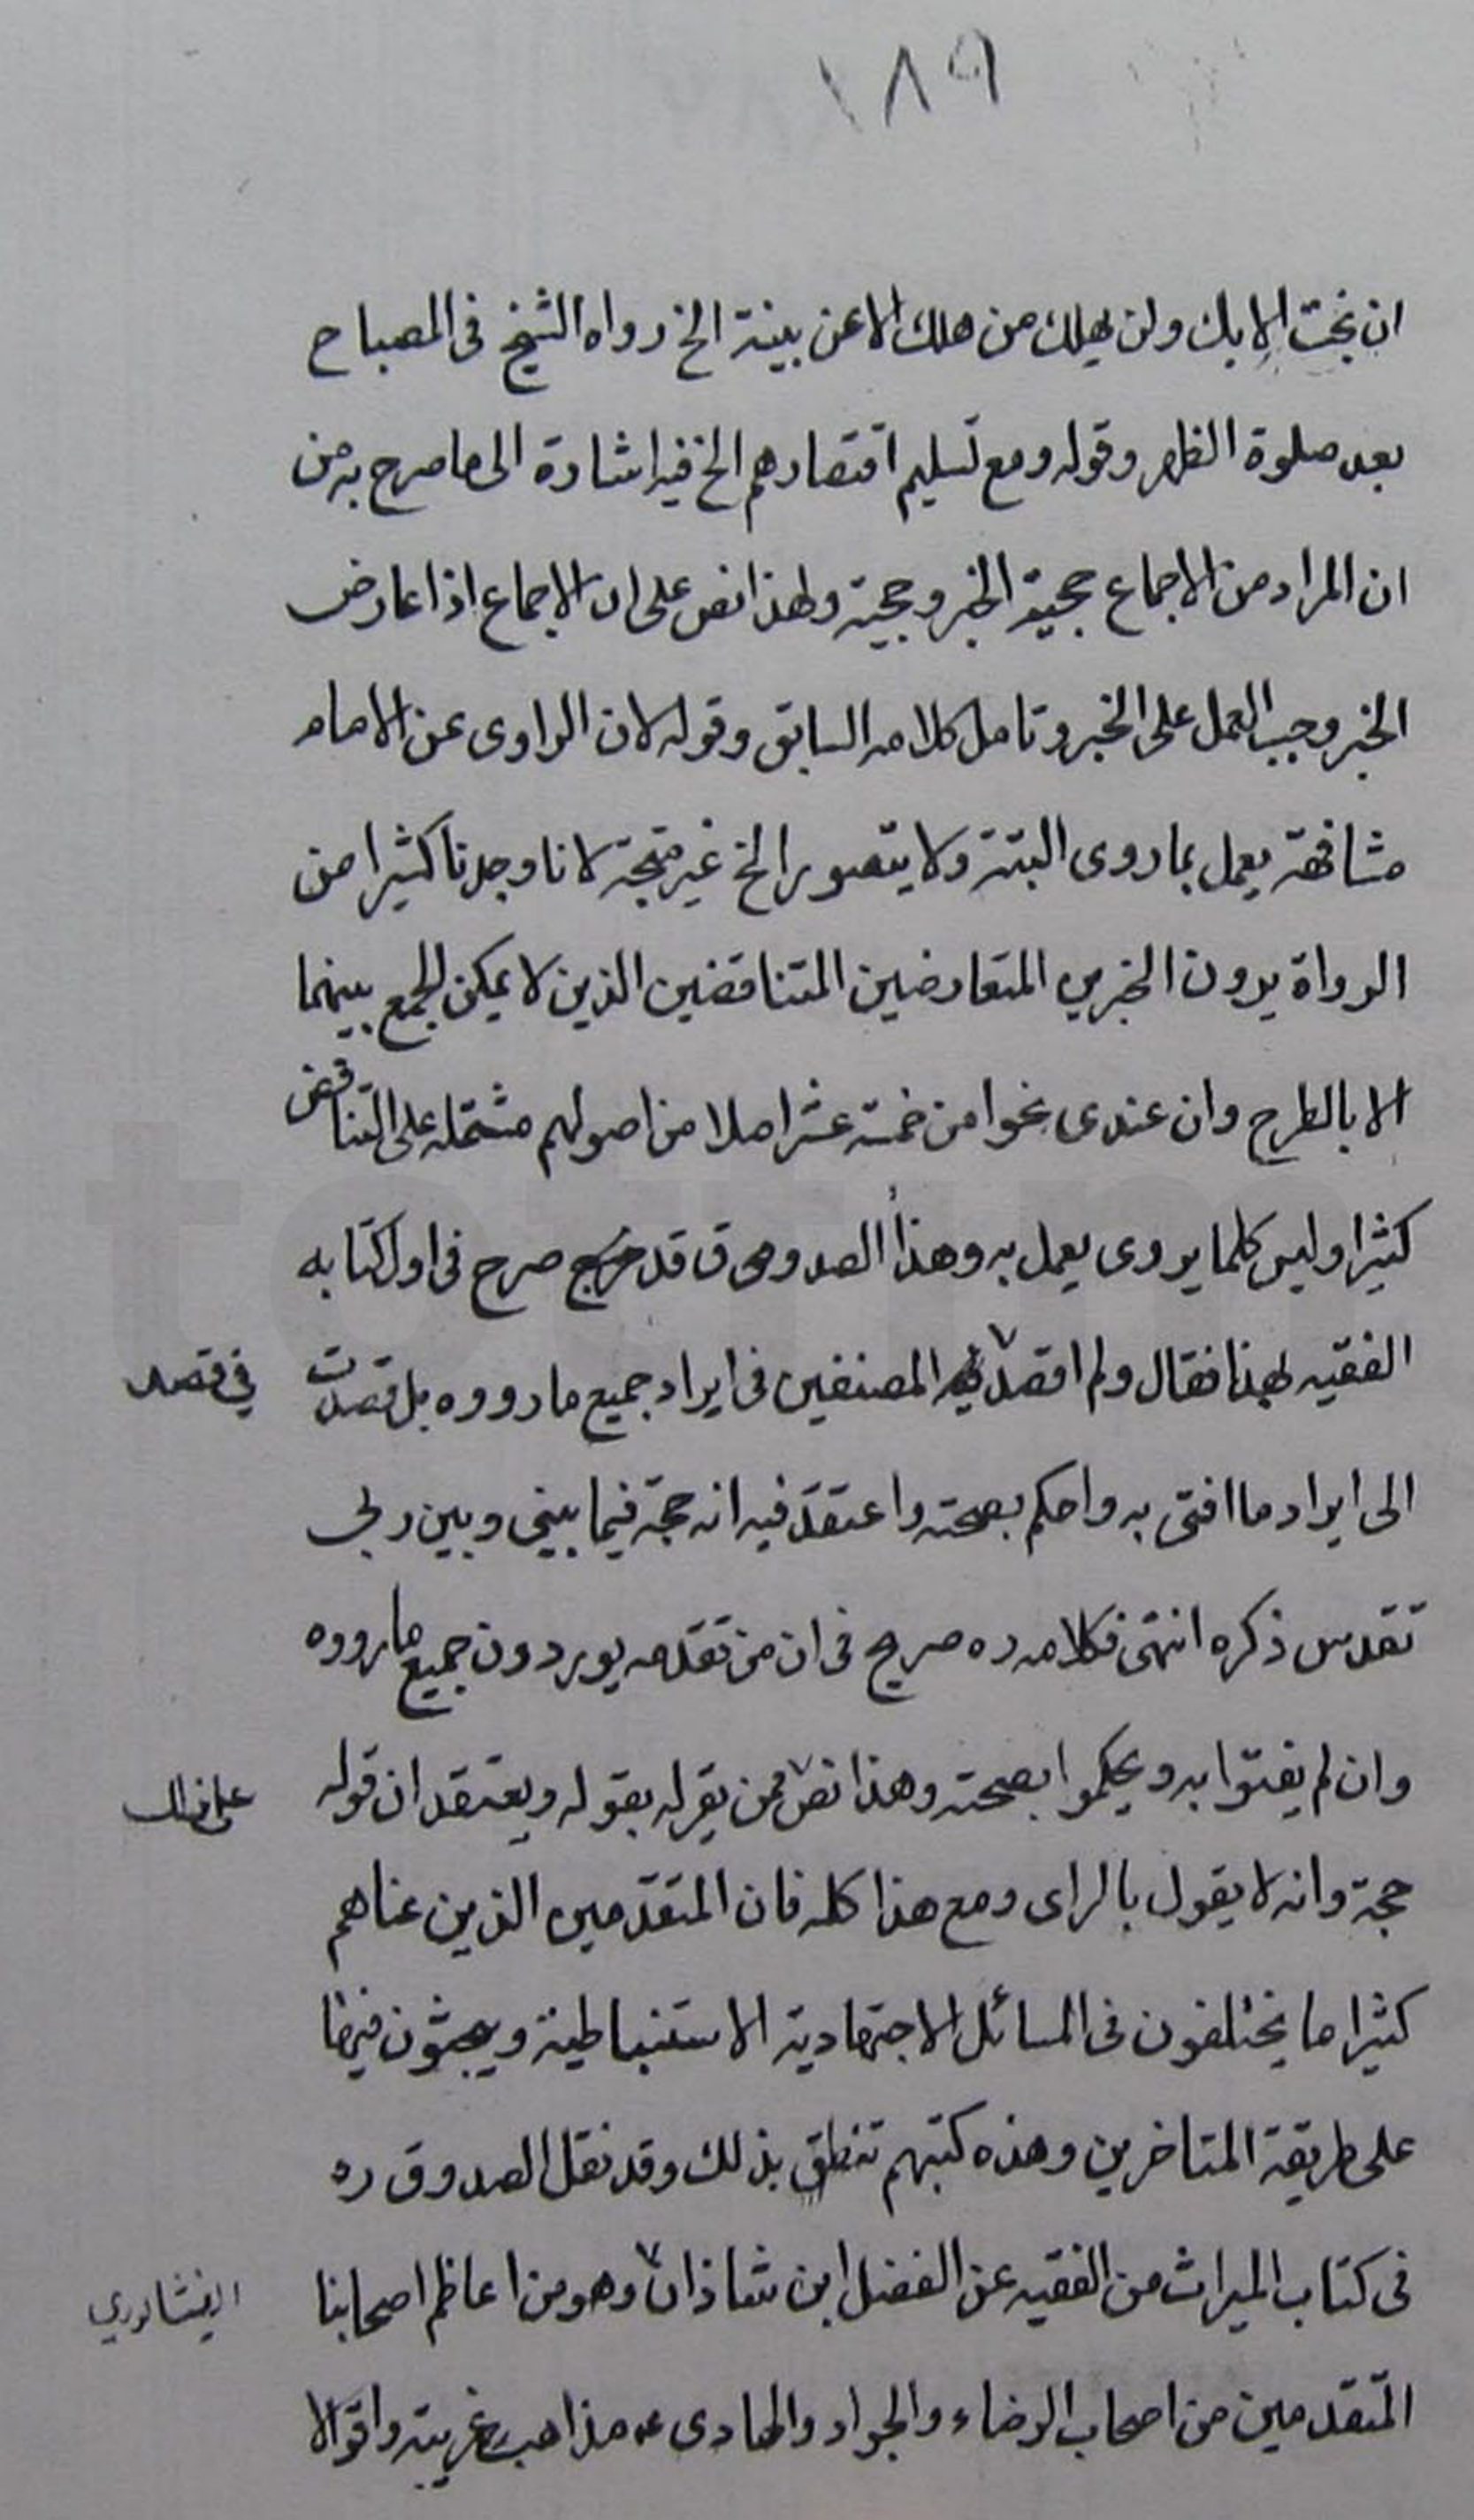 ١٨٩
ان نجت الا بك ولن يهلك من هلك الا عن بينة الخ رواه الشيخ فى المصباح
بعد صلوة الظهر وقوله ومع تسليم اقتصارهم الخ فيه اشارة الى ما صرح به من
ان المراد من الاجماع حجية الخبر وحجيته ولهذا نص على ان الاجماع اذا عارض
الخبر وجب العمل على الخبر وتامل كلامه السابق وقوله لان الراوى عن الامام
مشافهة يعمل بما روى البتة ولا يتصور الخ غير متجه لانا وجدنا كثيرا من
الرواة يرون الخبرين المتعارضين المتناقضين الذين لا يمكن الجمع بينهما
الا بالطرح وان عندى نحوا من خمسة عشر اصلا من اصولهم مشتملة على التناقض
كثيرا وليس كلما يروى يعمل به وهذا الصدوق قد صرح فى اول كتابه
الفقيه بهذا فقال ولم اقصد فيه المصنفين فى ايراد جميع ما رووه بل قصدت
في قصد
الى ايراد ما افتى به واحكم بصحته واعتقد فيه انه حجة فيما بينى وبين ربى
تقدس ذكره انتهى فكلامه ره صريح فى ان من تقدمه يوردون جميع ما رووه
وان لم يفتوا به ويحكموا بصحته وهذا نص ممن يقر له بقوله ويعتقد ان قوله
على ذلك
حجة وانه لا يقول بالراى ومع هذا كله فان المتقدمين الذين عناهم
كثيرا ما يختلفون فى المسائل الاجتهادية الاستنباطية ويبحثون فيها
على طريقة المتاخرين وهذه كتبهم تنطق بذلك وقد نقل الصدوق ره
فى كتاب الميراث من الفقيه عن الفضل ابن شاذان وهو من اعاظم اصحابنا
النيشابوري
المتقدمين من اصحاب الرضاء والجواد والهادى ع مذاهب غريبة واقوالا